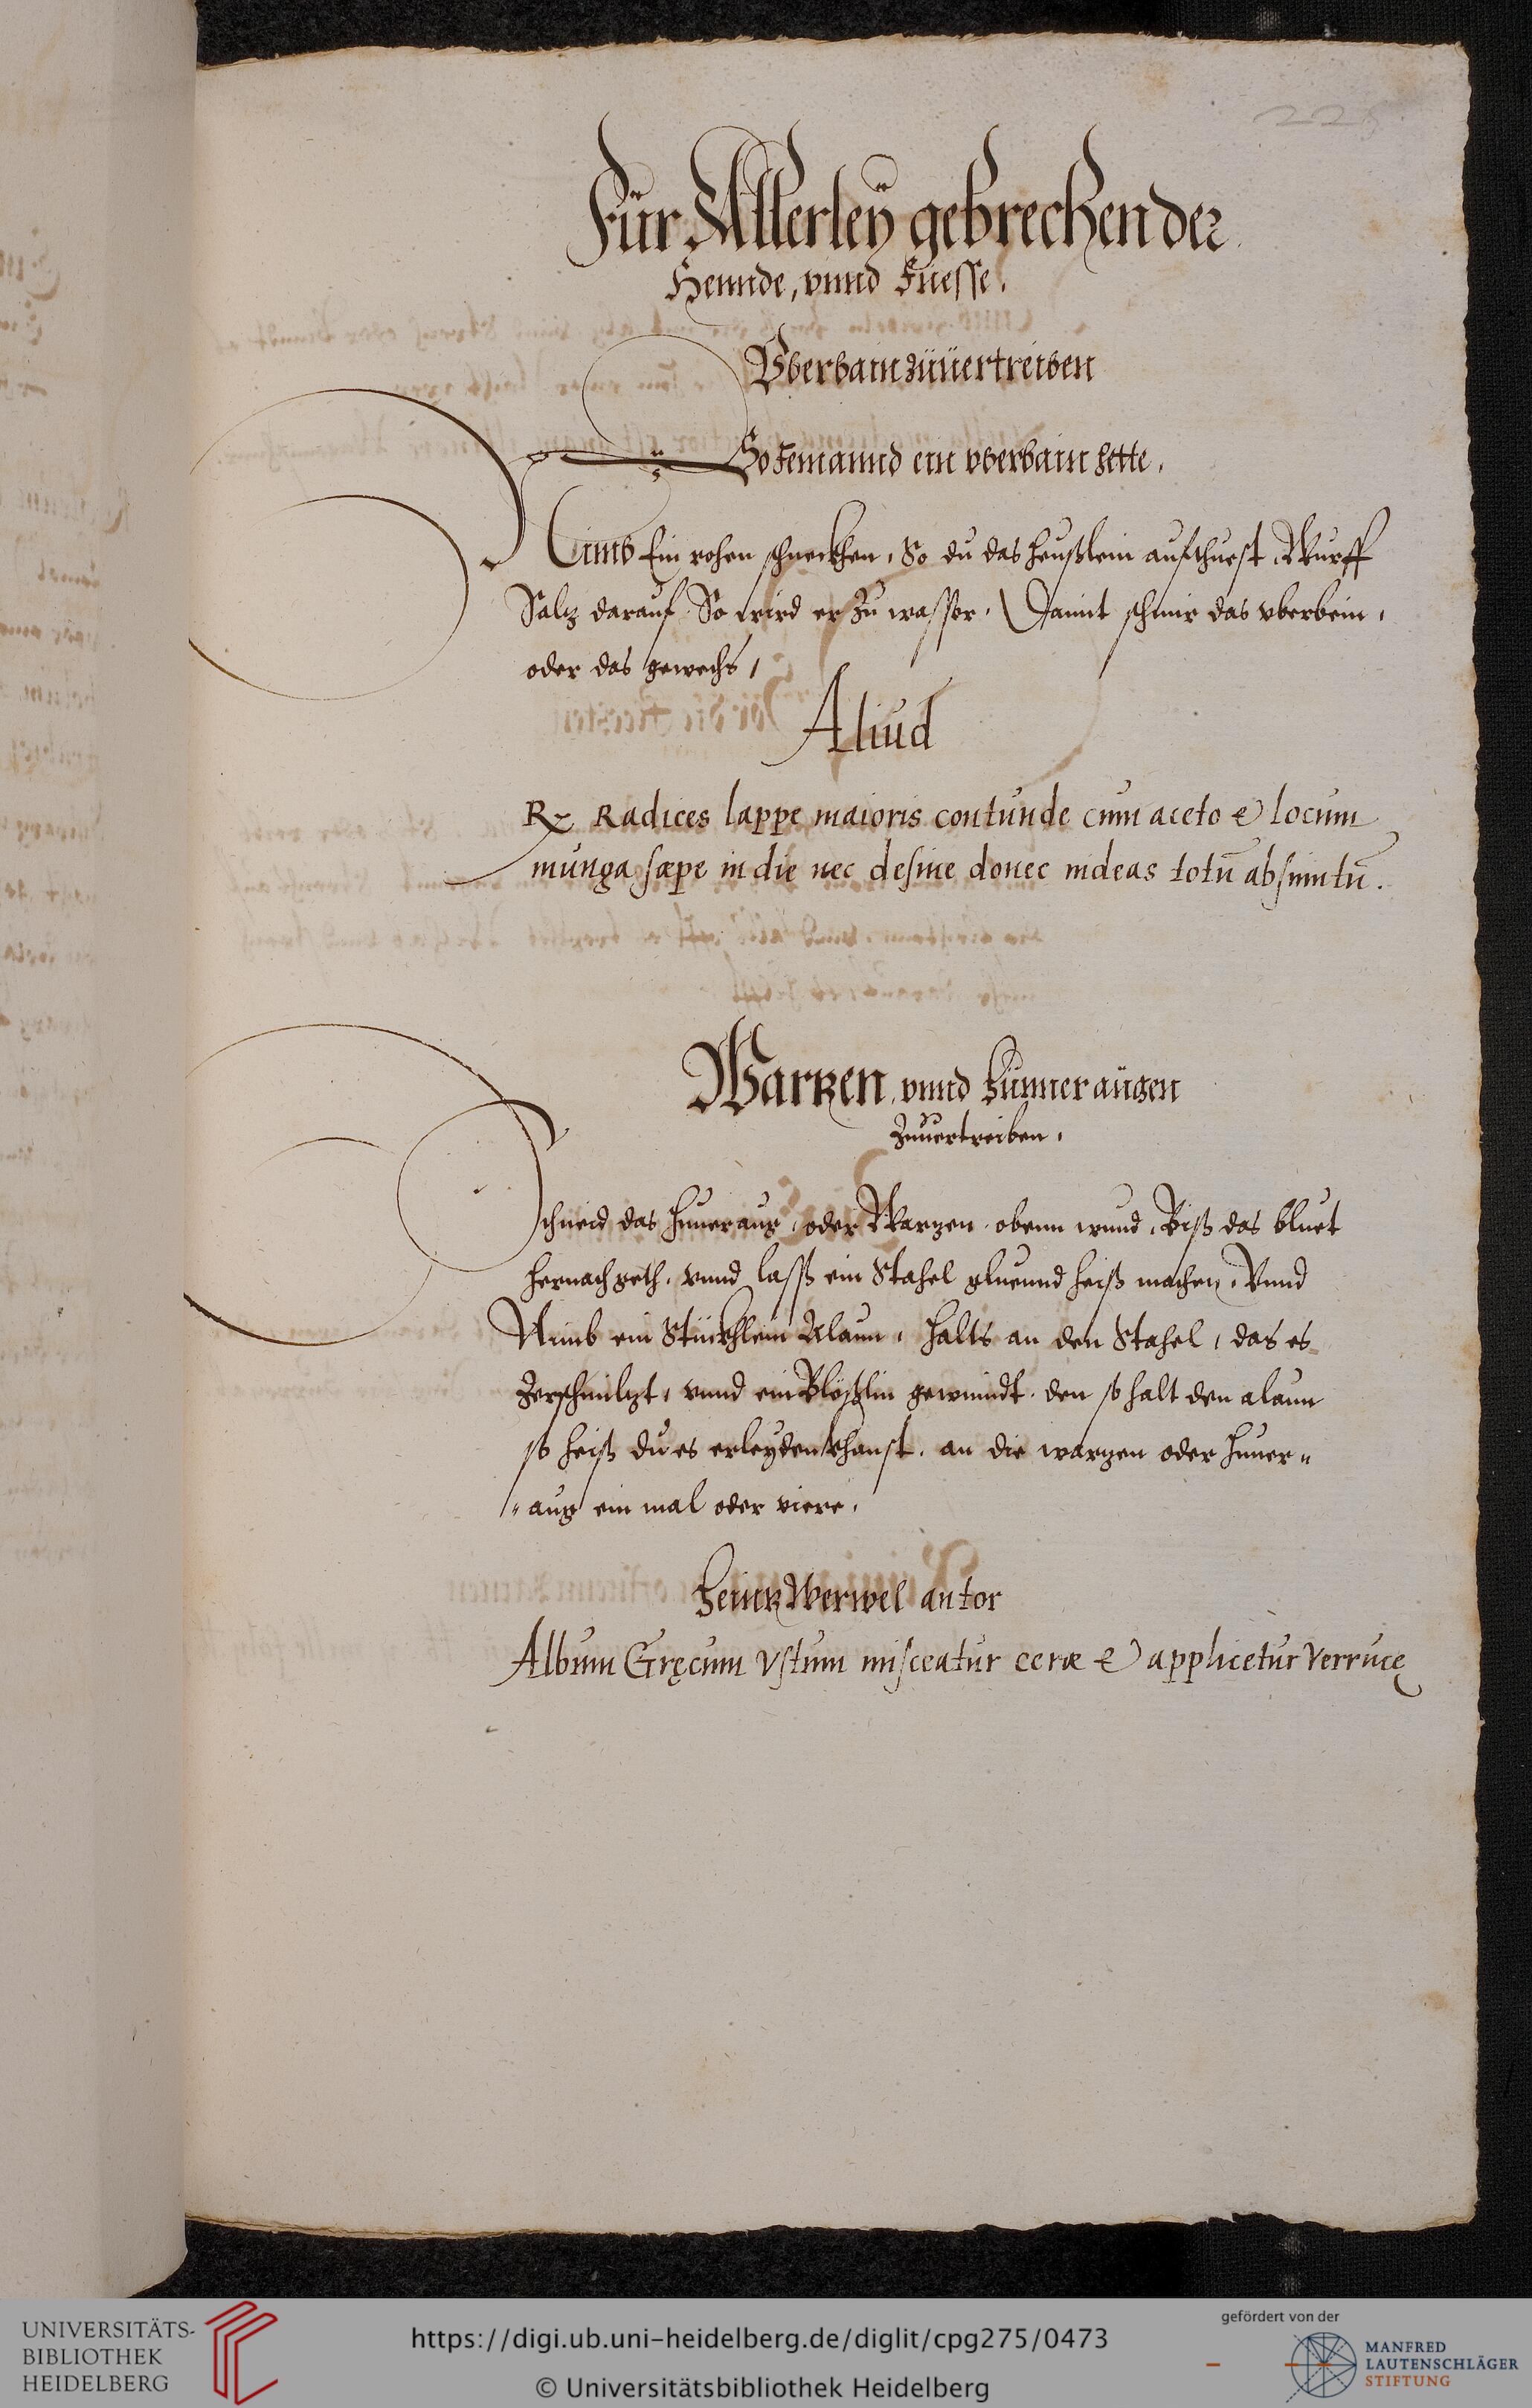 225
Für Allerley gebrechen der
Hennde, vnnd Fuesse.
Vberbain züuertreiben
So Jemannd ein vberbain hette.
Nimb Ein rohen schneckhen, So du das heußlein aufthuest, Wurff
Saltz darauf So wird er zu wasser. Damit schmir das vberbein,
oder das gewechs,
Aliud
Rx Radices lappe maioris contunde cum aceto & locum
inunga sæpe in die nec desine donec uideas totū absumtū.
Wartzen, vnnd hünneraugen
Zuuertreiben.
Schneid das huneraug, oder Wartzen oben wund, Biß das bluet
hernach geth. vnnd lasß ein Stahel gluennd heiß machen, Vnnd
Nimb ein Stückhlein Alaun, halts an den Stahel, das es
Zerschmiltzt, vnnd ein Bläßlin gewindt. den so halt den alaun
so heiß du es erleyden khanst. an die wartzen oder huner„
„aug ein mal oder viere.
Heintz Werwel autor
Album Gręcum Vstum misceatur ceræ & applicetur Verrucę
UNIVERSITÄTS-
BIBLIOTHEK
HEIDELBERG
https://digi.ub.uni-heidelberg.de/diglit/cpg275/0473
© Universitätsbibliothek Heidelberg
gefördert von der
MANFRED
LAUTENSCHLÄGER
STIFTUNG